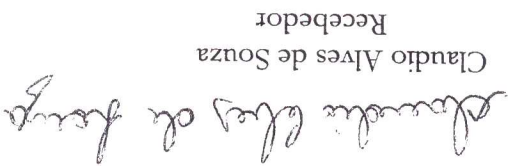 Claudio Alves de Souza
Claudio Alves de Souza
Recebedor